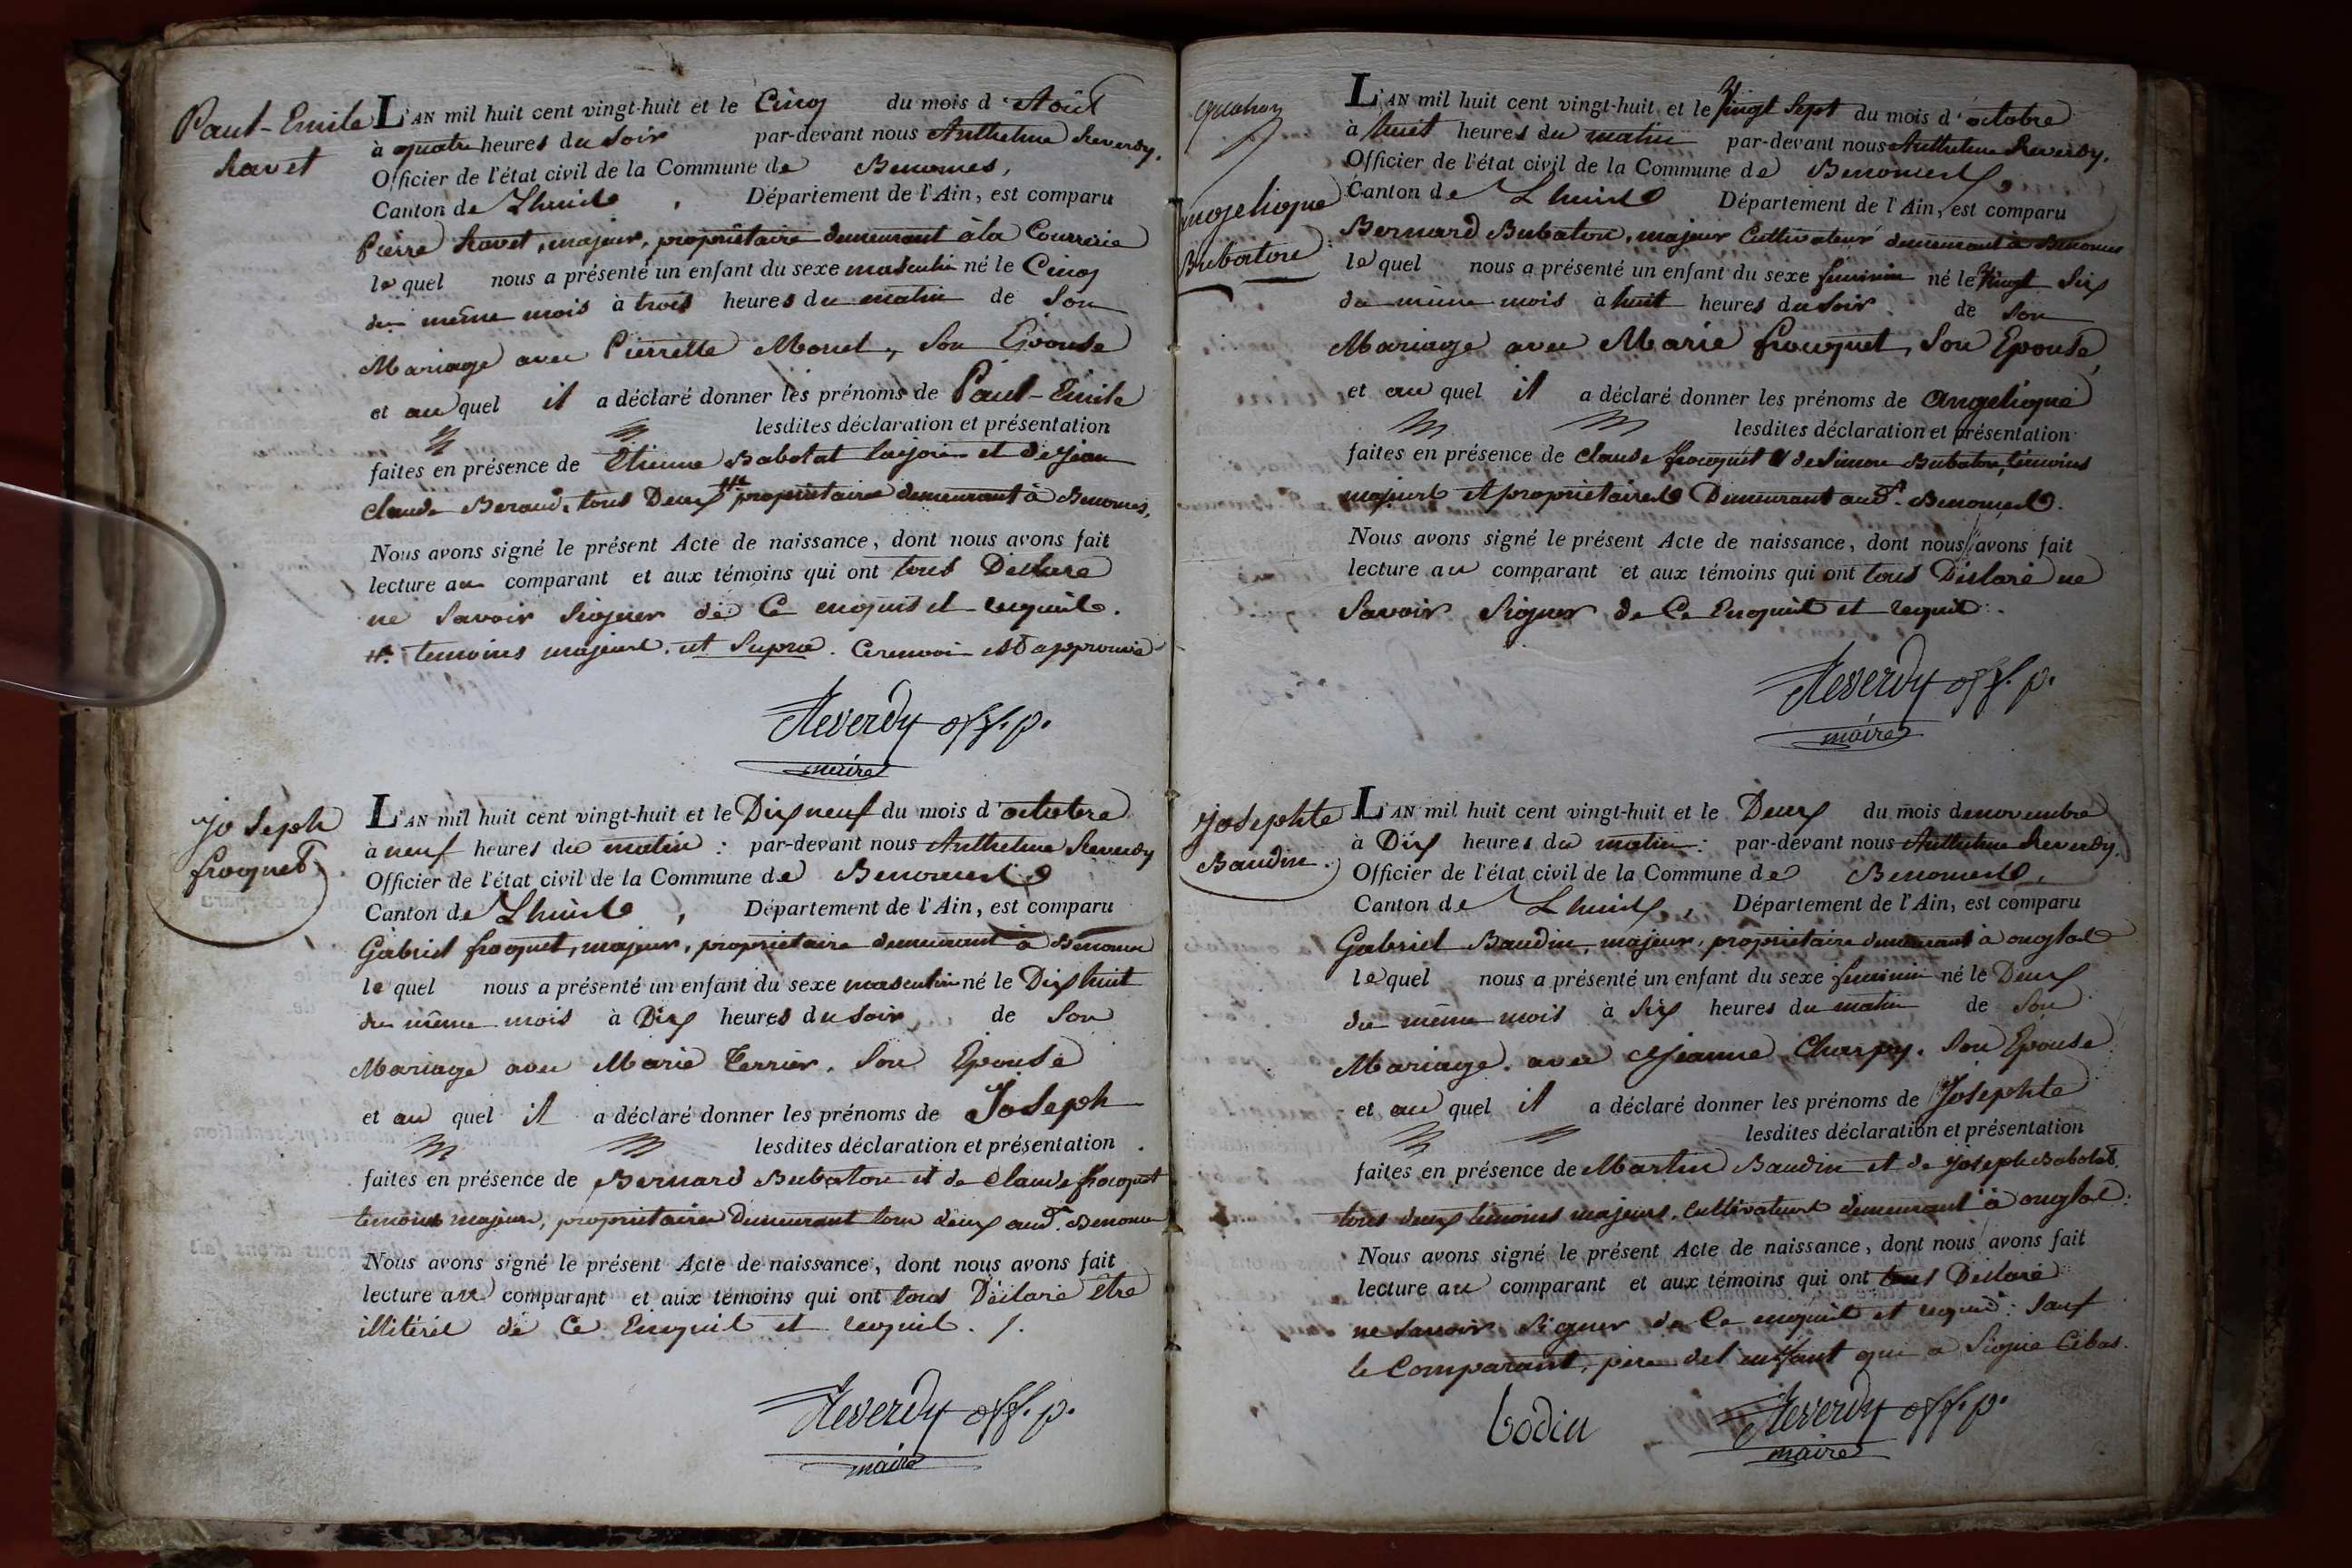 Paul-Emile
Ravet
L'AN mil huit cent vingt-huit et le Cinq du mois d'Août
à quatre heures du soir par-devant nous Anthelme Reverdy,
Officier de l'état civil de la Commune de Benonces,
Canton de Lhuis, Département de l'Ain, est comparu
Pierre Ravet, majeur, propriétaire demeurant à la Courrerie
lequel nous a présenté un enfant du sexe masculin né le Cinq
du même mois à trois heures du matin de Son
Mariage avec Pierrette Moret, Son Epouse
et au quel il a déclaré donner les prénoms de Paul-Emile
lesdites déclaration et présentation
faites en présence de Etienne Babolat et de jean
claude Beraud, tous Deux # propriétaires demeurant à Benonces,
Nous avons signé le présent Acte de naissance, dont nous avons fait
lecture au comparant et aux témoins qui ont tous Déclaré
ne Savoir Signer de Ce enquis et requis.
#. temoins majeurs. ut Supra. Ce renvoi est approuvé
Reverdy off. p.
maire
Joseph
froquet
L'AN mil huit cent vingt-huit et le Dix neuf du mois d'octobre
à neuf heures du matin : par-devant nous Anthelme Reverdy
Officier de l'état civil de la Commune de Benonces
Canton de Lhuis, Département de l'Ain, est comparu
Gabriel froquet, majeur, propriétaire demeurant à Benonces
lequel nous a présenté un enfant du sexe masculin né le Dix huit
du même mois à Dix heures du soir de Son
Mariage avec Marie Terrier. Son Epouse
et au quel il a déclaré donner les prénoms de Joseph
lesdites déclaration et présentation
faites en présence de Bernard Bubaton et de claude frocquet
temoins majeurs, propriétaires Demeurant tous deux aud.t Benonces
Nous avons signé le présent Acte de naissance, dont nous avons fait
lecture au comparant et aux témoins qui ont tous Déclaré être
illitérés de Ce Enquis et requis. /.
Reverdy off. p.
maire
Angelique
Bubaton
L'AN mil huit cent vingt-huit et le Vingt Sept du mois d'octobre
à huit heures du matin par-devant nous Anthelme Reverdy,
Officier de l'état civil de la Commune de Benonces,
Canton de Lhuis Département de l'Ain, est comparu
Bernard Bubaton, majeur Cultivateur demeurant à Benonces
lequel nous a présenté un enfant du sexe feminin né le Vingt Six
du même mois à huit heures du soir de Son
Mariage avec Marie frocquet, Son Epouse,
et au quel il a déclaré donner les prénoms de Angelique
lesdites déclaration et présentation
faites en présence de Claude frocquet & de Simon Bubaton, témoins
majeurs et propriétaires Demeurant aud.t Benonces.
Nous avons signé le présent Acte de naissance, dont nous avons fait
lecture au comparant et aux témoins qui ont tous Déclaré ne
Savoir Signer de Ce Enquis et requis.
Reverdy off. p.
maire
Josephte
Baudin.
L'AN mil huit cent vingt-huit et le Deux du mois de novembre
à Dix heures du matin : par-devant nous Anthelme Reverdy,
Officier de l'état civil de la Commune de Benonces,
Canton de Lhuis, Département de l'Ain, est comparu
Gabriel Baudin, majeur, propriétaire demeurant à onglas
lequel nous a présenté un enfant du sexe feminin né le Deux
du même mois à Six heures du matin de Son
Mariage. avec Jeanne Charpy. Son Epouse
et au quel il a déclaré donner les prénoms de Josephte
lesdites déclaration et présentation
faites en présence de Martin Baudin et de Joseph Babolat,
tous deux témoins majeurs, Cultivateurs demeurant à onglas.
Nous avons signé le présent Acte de naissance, dont nous avons fait
lecture au comparant et aux témoins qui ont tous Déclaré
ne Savoir Signer de Ce enquis et requis : Sauf
le Comparant, père de l'enfant qui a Signé Cibas.
bodin
Reverdy off. p.
maire